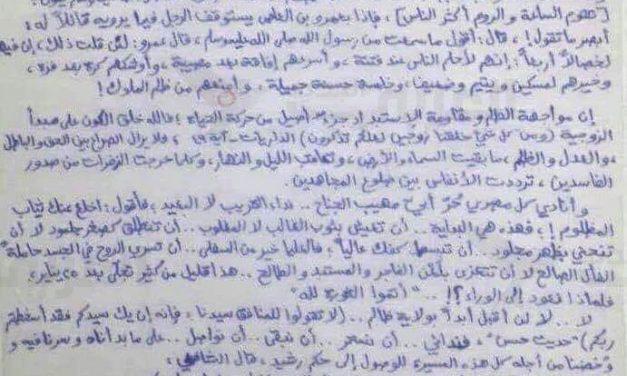 [تقوم الساعة والروم أكثر الناس] ، فإذا بعمرو بن العاص يستوقف الرجل فيما يرويه قائلاً له:
أبصر ما تقول! ، قال: أقول ما سمعت من رسول الله صلى الله عليه وسلم ، قال عمرو: لئن قلت ذلك، إن فيهم
لخصالاً أربعاً: إنهم لأحلم الناس عند فتنة ، وأسرعهم إفاقة بعد مصيبة ، وأوشكهم كرة بعد فرة ،
وخيرهم لمسكين ويتيم وضعيف، وخامسة حسنة جميلة ، وأمنعهم من ظلم الملوك!
إن مواجهة الظلم ومقاومة الاستبداد جزء أصيل من حركة الحياة ، فالله خلق الكون على مبدأ
الزوجية (ومن كل شيء خلقنا زوجين لعلكم تذكرون) الذاريات - آية ٤٩ ، فلا يزال الصراع بين الحق والباطل
، والعدل والظلم ، ما بقيت السماء والأرض ، وتعاقب الليل والنهار، وكلما خرجت الزفرات من صدور
الفاسدين ، ترددت الأنفاس بين ضلوع المجاهدين.
وأنادي كل مصري حر أبي مهيب الجناح .. نداء القريب لا البعيد ، فأقول: اخلع عنك ثياب
المظلوم! ، فهذه هي البداية .. أن تعيش بثوب الغالب لا المغلوب .. أن تنطلق كصخر جلمود لا أن
تنحني بظهر مجلود .. أن تبسط كفك عالياً ، فالعليا خير من السفلى .. أن تسري الروح في الجسد حاملة
الفأل الصالح لا أن تتعزى بأنات الفاجر والمستبد والطالح .. هذا قليل من كثير تجلى بعد ٢٥ يناير،
فلماذا نعود إلى الوراء؟! .. "أتموا الثورة لله"
لا .. لا لن أقبل أبداً بولاية ظالم .. (لا تقولوا للمنافق سيدنا ، فإنه إن يك سيدكم فقد أسخطتم
ربكم) "حديث حسن" ، فندائي .. أن نستمر .. أن نبقى .. أن نواصل .. على ما بدأناه وسرنا فيه و
وخضنا من أجله كل هذه المسيرة للوصول إلى حكم رشيد ، قال الشافعي :